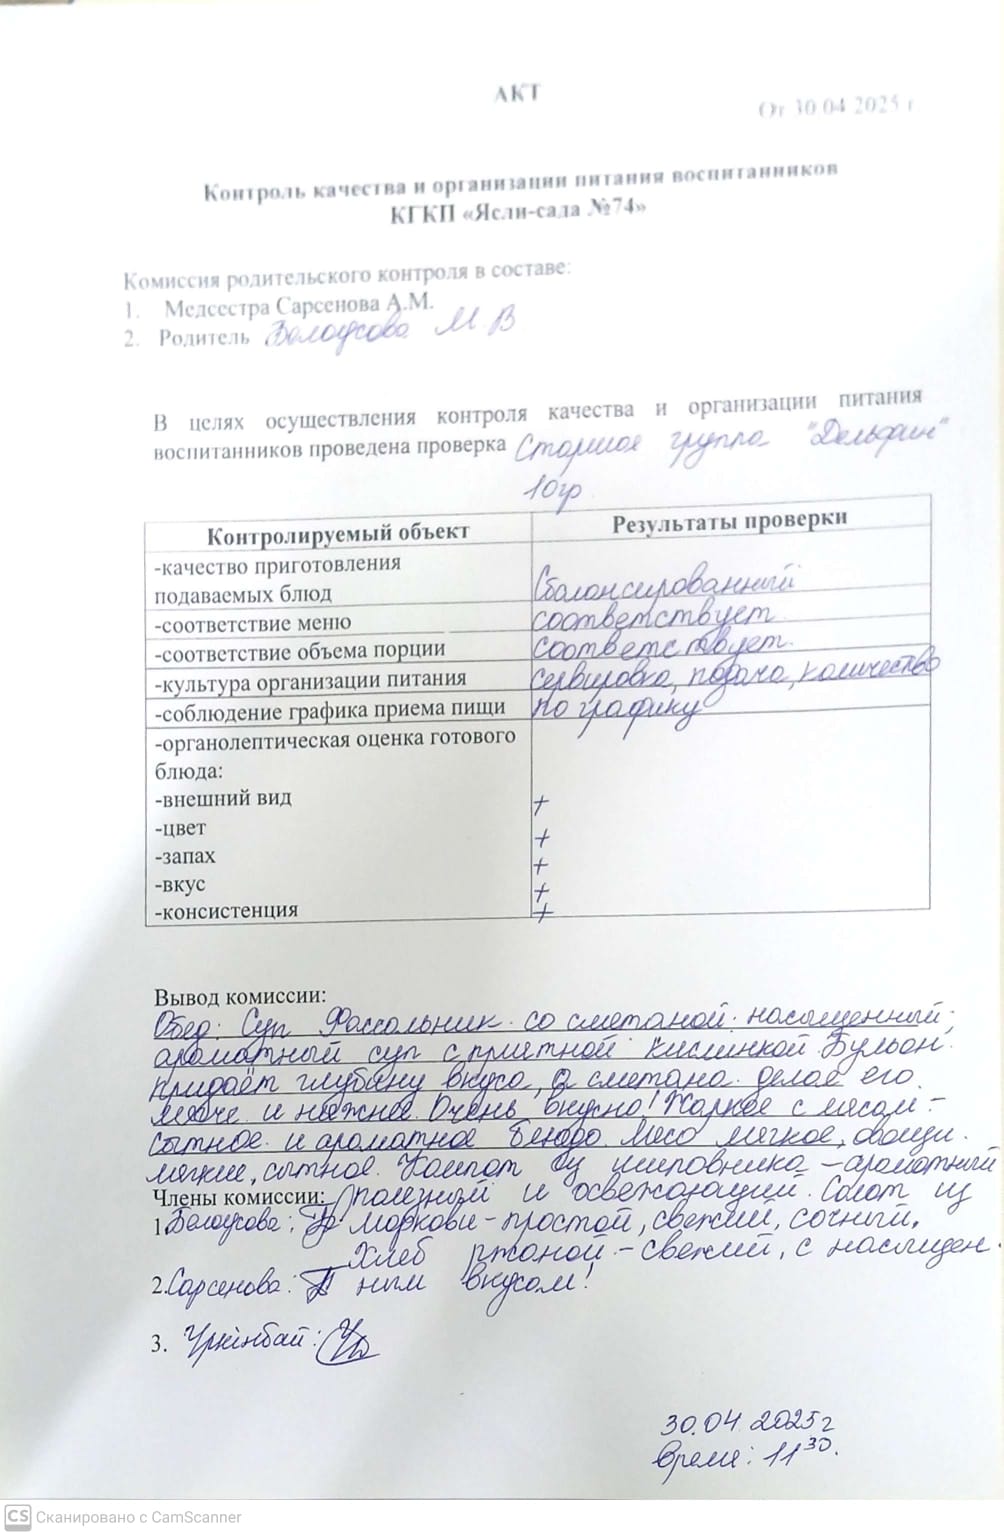 АКТ
От 30.04.2025 г
Контроль качества и организации питания воспитанников
КГКП «Ясли-сада №74»
Комиссия родительского контроля в составе:
1. Медсестра Сарсенова А.М.
2. Родитель Белоусова М.В
В целях осуществления контроля качества и организации питания
воспитанников проведена проверка Старшая группа "Дельфин"
10гр
Контролируемый объект Результаты проверки
-качество приготовления
подаваемых блюд Сбалонсированный
-соответствие меню соответствует
-соответствие объема порции соответствует.
-культура организации питания сервировка, подача, количество
-соблюдение графика приема пищи по графику
-органолептическая оценка готового
блюда:
-внешний вид +
-цвет +
-запах +
-вкус +
-консистенция +
Вывод комиссии:
Обед: Суп Рассольник со сметаной. насыщенный,
ароматный суп с приятной кислинкой. Бульон
придаёт глубину вкуса, а сметана делае его
мягче и нежнее. Очень вкусно! Жаркое с мясом -
сытное и ароматное блюдо. Мясо мягкое, овощи
мягкие, сытное. Компот из шиповника - ароматный
Члены комиссии: полезный и освежающий. Салат из
1. Белоусова: моркови - простой, свежий, сочный.
Хлеб ржаной - свежий, с насыщен.
2. Сарсенова: ным вкусом!
3. Уркінбай:
30.04.2025г
Время: 11 30.
CS Сканировано с CamScanner